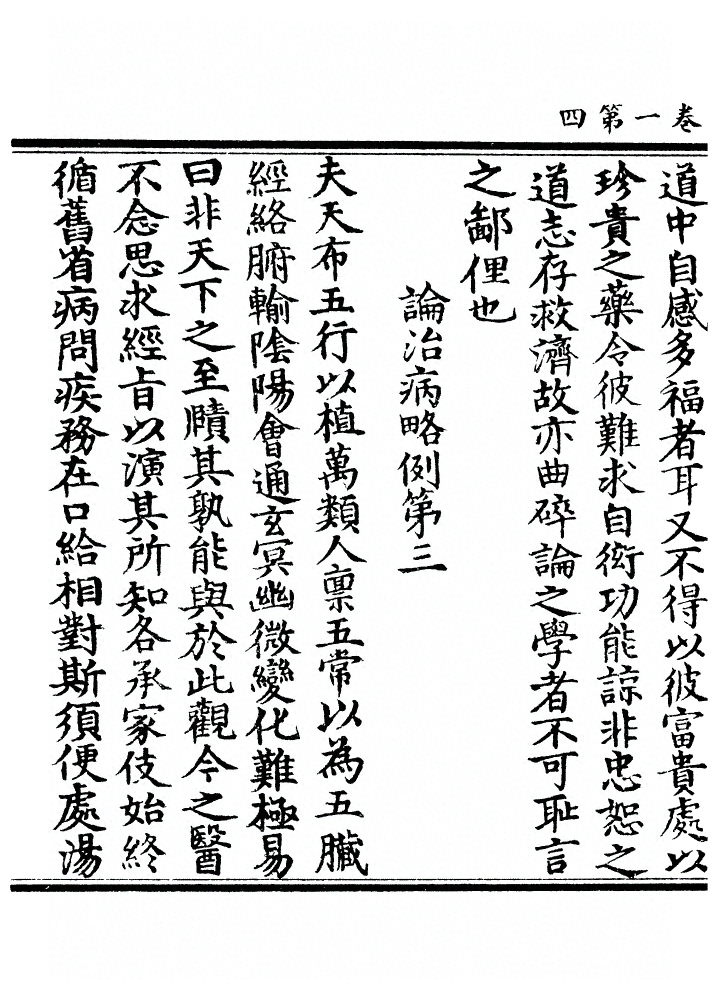 卷一第四
道中自感多福者耳又不得以彼富貴處以
珍貴之藥令彼難求自衒功能諒非忠恕之
道志存救濟故亦曲碎論之學者不可耻言
之鄙俚也
論治病略例第三
夫天布五行以植萬類人禀五常以為五臟
經絡腑輸陰陽會通玄冥幽微變化難極易
曰非天下之至賾其孰能與於此觀今之醫
不念思求經旨以演其所知各承家伎始終
循舊省病問疾務在口給相對斯須便處湯